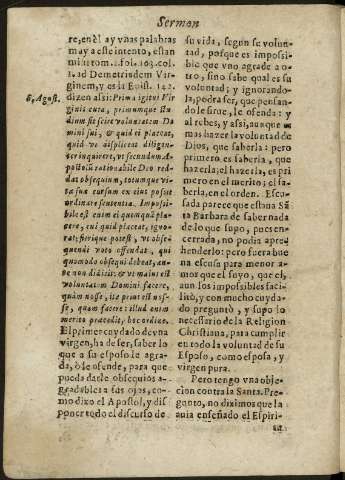 Sermon
re, en èl ay vnas palabras
muy a este intento, estan
mi in tom. 1. fol. 103. col.
1. ad Demetriadem Vir-
ginem, y es la Epist. 142.
S. Agost.
dizen assi: Prima igitur Vir
ginis cura, primumque stu
dium sit scire voluntatem Do
mini sui, & quid ei placeat,
quid ve displiceat diligen-
ter inquirere, vt secundum A-
postolū rationabile Deo red-
dat obsequium, totumque vi-
ta sua cursum ex eius possit
ordinare sententia. Impossi-
bile est enim ei quemquā pla-
cere, cui quid placeat, igno-
rat; fierique potest, vt obse-
quendi voto offendat, qui
quomodo obsequi debeat, an-
te non didicit: & vt maius est
voluntatem Domini facere,
quàm nosse, ita prius est nos-
se, quam facere: illud enim
merito præcedit, hoc ordine.
El primer cuydado de vna
virgen, ha de ser, saber lo
que a su esposo le agra-
da, ò le ofende, para que
pueda darle obsequios a-
gradables a sus ojos, co-
mo dixo el Apostol, y dis
poner todo el discurso de
su vida, segun su volun-
tad, porque es impossi-
ble que vno agrade a o-
tro, sino sabe qual es su
voluntad; y ignorando-
la, podra ser, que pensan-
do le sirue, le ofenda: y
al rebes, y assi, aunque es
mas hazer la voluntad de
Dios, que saberla: pero
primero es saberla, que
hazerla; el hazerla, es pri
mero en el merito; el sa-
berla, en el orden. Escu-
sada parece que estaua Sāta
Barbara de saber nada
de lo que supo, pues en-
cerrada, no podia apre-
henderlo: pero fuera bue
na escusa para menor a-
mor que el suyo, que el,
aun los impossibles faci-
litò, y con mucho cuyda-
do preguntò, y supo lo
necessario de la Religion
Christiana, para cumplir
en todo la voluntad de su
Esposo, como esposa, y
virgen pura.
Pero tengo vna obje-
cion contra la Santa. Pre-
gunto, no diximos que la
auia enseñado el Espiri-